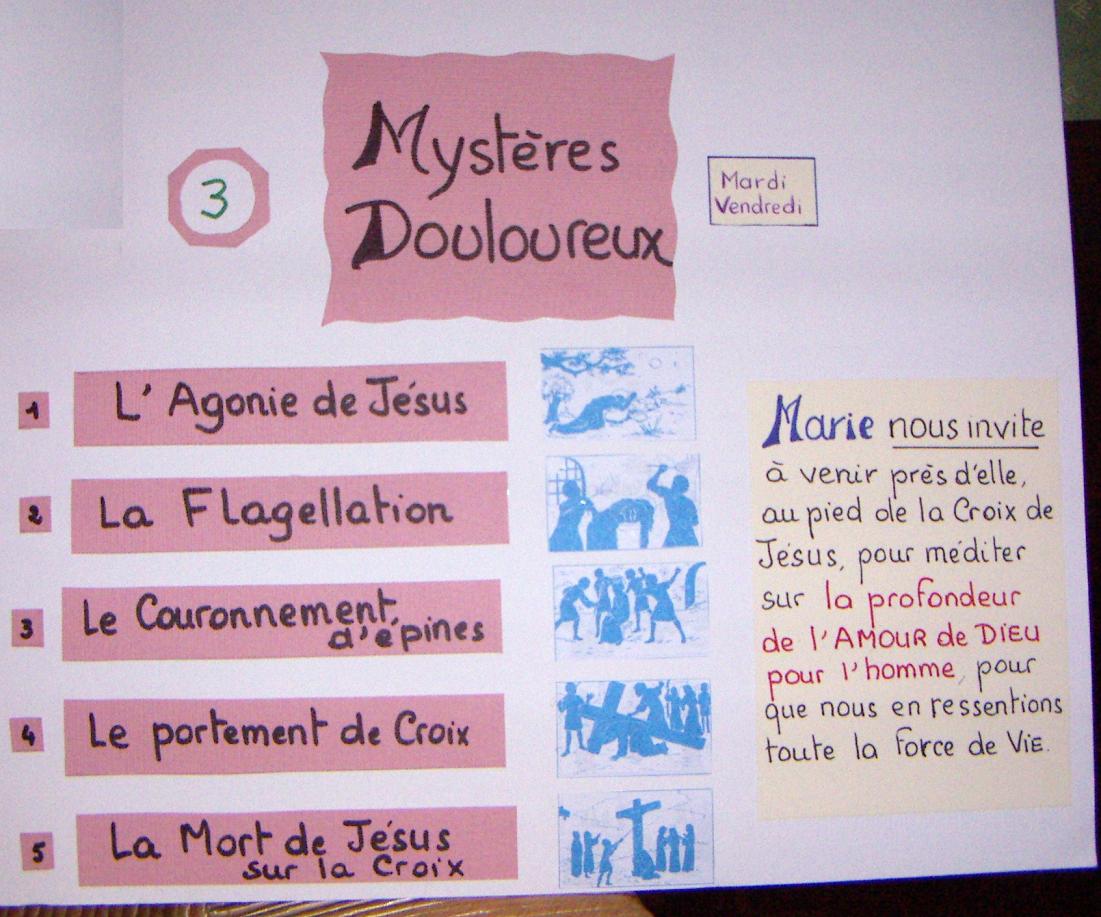 3
Mystères
Douloureux
Mardi
Vendredi
1
L'Agonie de Jésus
2
La Flagellation
3
Le Couronnement
d'épines
4
Le portement de Croix
5
La Mort de Jésus
sur la Croix
Marie nous invite
à venir près d'elle,
au pied de la Croix de
Jésus, pour méditer
sur la profondeur
de l'AMOUR de DIEU
pour l'homme, pour
que nous en ressentions
toute la force de VIE.